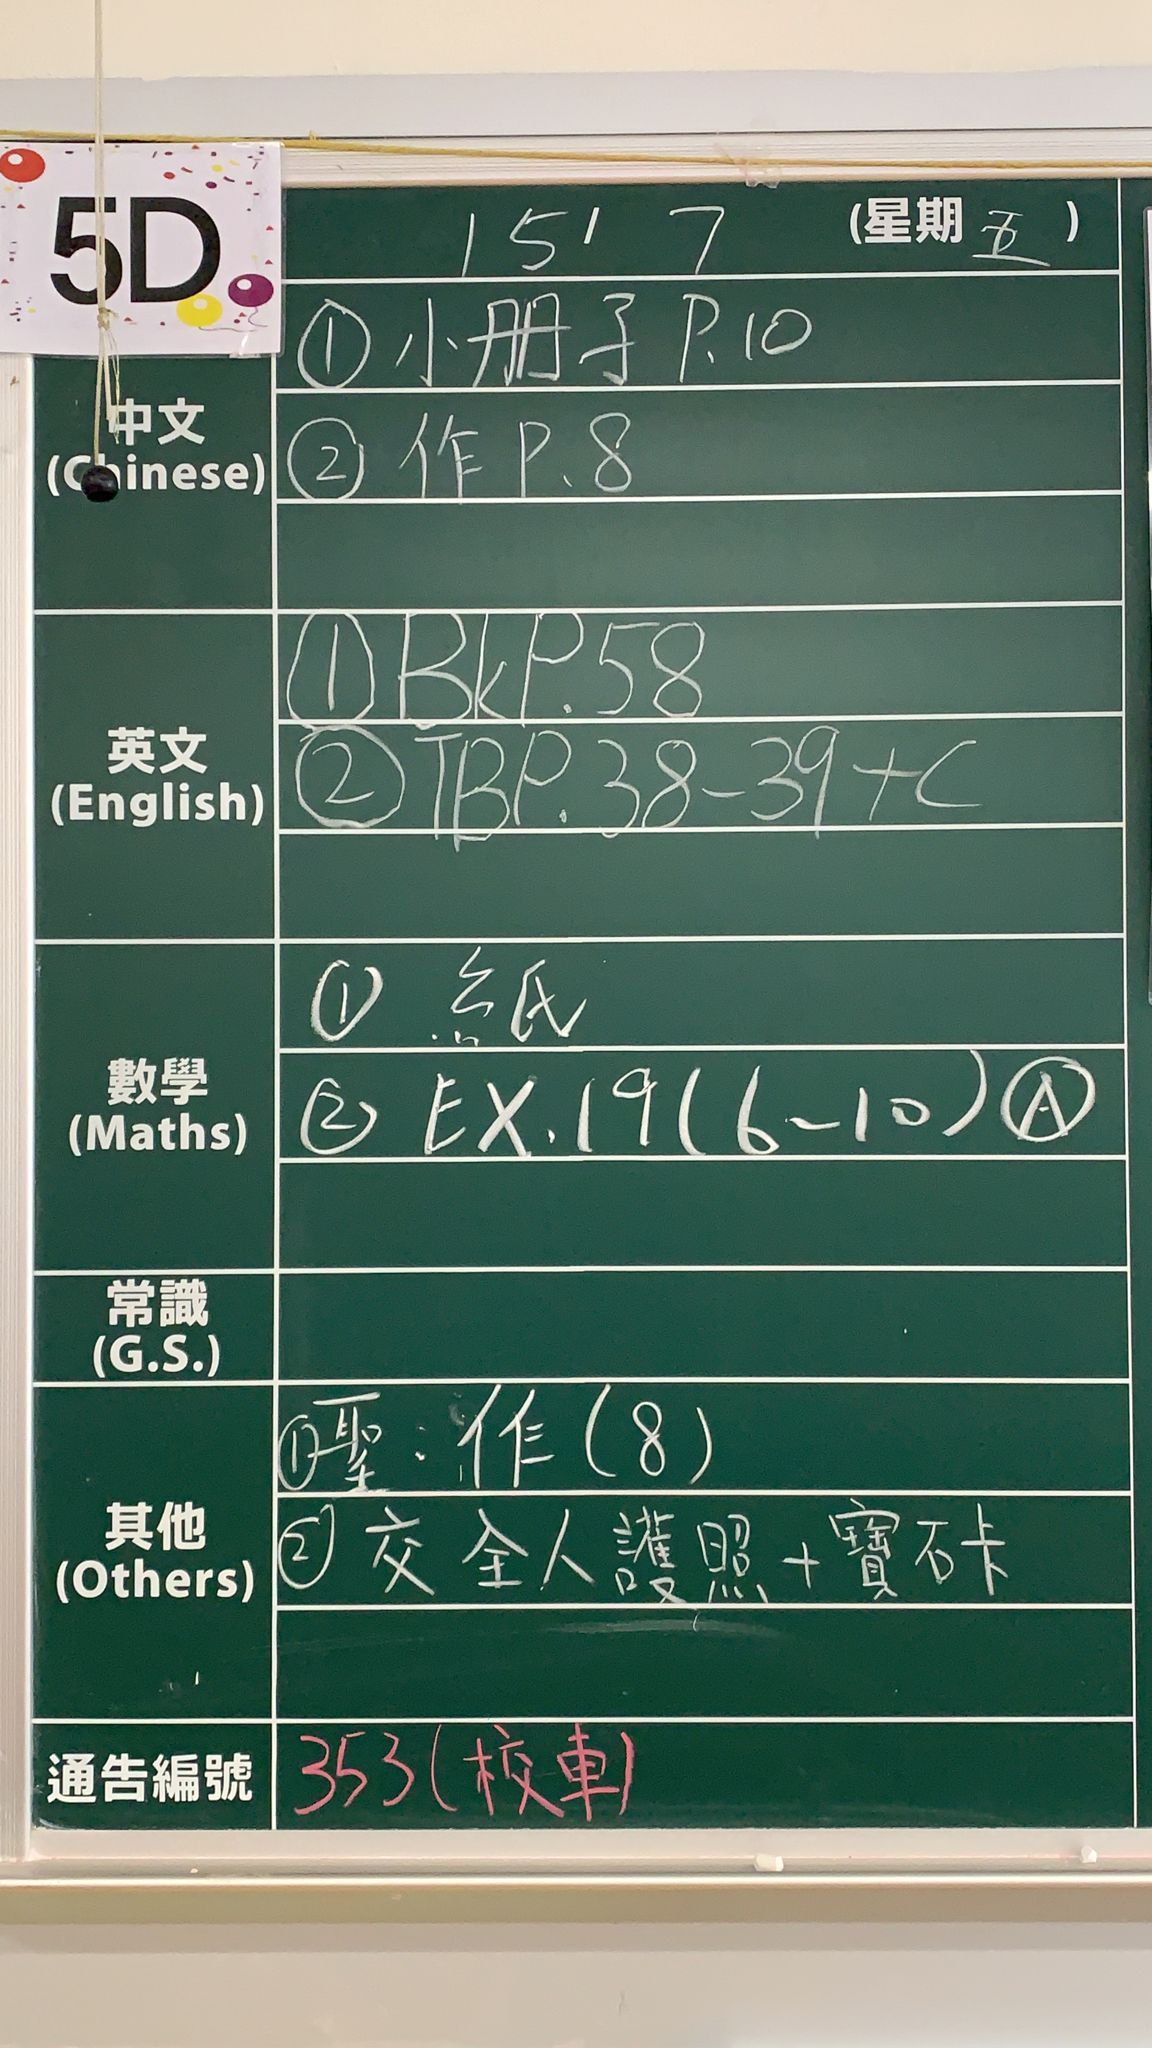 5D
15' 7 (星期五)
中文
(Chinese)
① 小册子 P.10
② 作 P.8
英文
(English)
① Bk P.58
② TB P.38-39+C
數學
(Maths)
① 紙
② EX.19(6-10)Ⓐ
常識
(G.S.)
其他
(Others)
① 聖:作(8)
② 交全人護照+寶石卡
通告編號
353(校車)